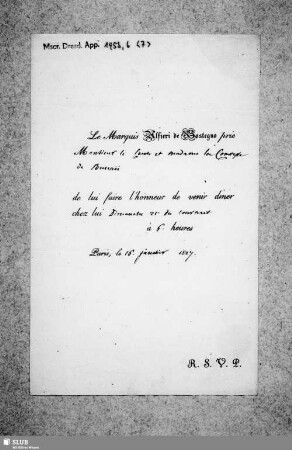 Mscr. Dresd. App. 1952, 6 (7)
Le Marquis Alfieri de Sostegno prie
Monsieur le Comte et madame la Comtesse
de
de lui faire l'honneur de venir dîner
chez lui Dimanche 21 du courant
à 6 heures
Paris, le 15 janvier 1827.
R. S. V. P.
SLUB
Wir führen Wissen.